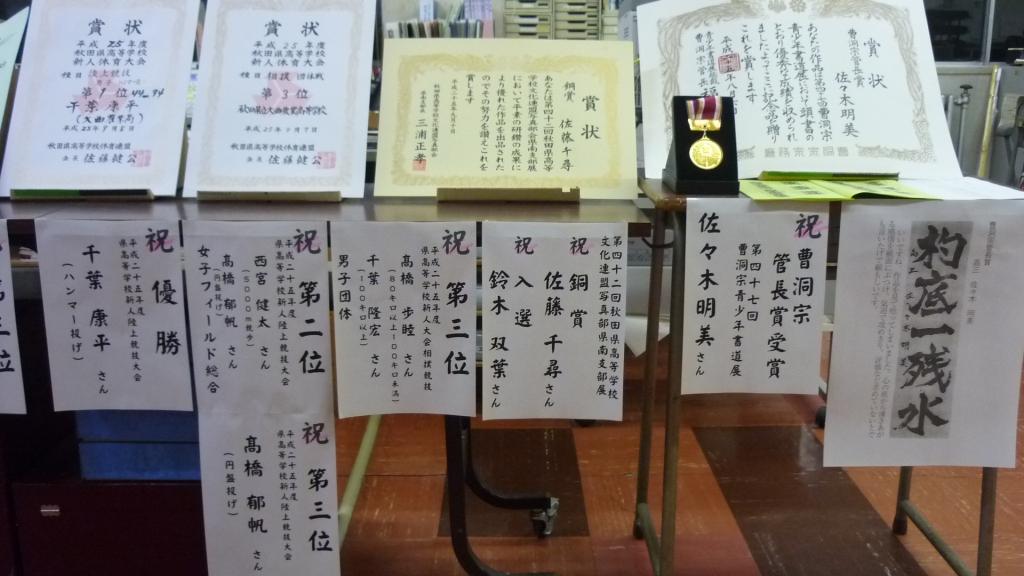 賞状
平成25年度
秋田県高等学校
新人体育大会
種目 陸上競技
第1位 44m34
千葉康平
(大曲農業高)
平成25年9月8日
秋田県高等学校体育連盟
会長 佐藤健公
賞状
平成25年度
秋田県高等学校
新人体育大会
種目 相撲 団体戦
第3位
秋田県立大曲農業高等学校
平成25年9月7日
秋田県高等学校体育連盟
会長 佐藤健公
賞状
銅賞 佐藤千尋
あなたは第四十二回秋田県高等
学校文化連盟写真部会県南支部展
において平素の研鑽の成果に
より優れた作品を出品された
のでその努力を讃えこれを
賞します
三浦正孝
賞状
佐々木明美
あなたの作品は第四十七回曹洞宗
青少年書道展において頭書の
これを賞します
祝 優勝
平成二十五年度
県高等学校新人陸上競技大会
千葉 康平 さん
(ハンマー投げ)
祝 第二位
平成二十五年度
県高等学校新人陸上競技大会
西宮 健太 さん
(5000m競歩)
髙橋 郁帆 さん
(円盤投げ)
女子フィールド総合
祝 第三位
平成二十五年度
県高等学校新人陸上競技大会
髙橋 郁帆 さん
(円盤投げ)
祝 第三位
平成二十五年度
県高等学校新人大会相撲競技
髙橋 歩睦 さん
(80キロ以上~100キロ未満)
千葉 隆宏 さん
(100キロ以上)
男子団体
第四十二回秋田県高等学校
文化連盟写真部県南支部展
祝 銅賞
佐藤 千尋 さん
祝 入選
鈴木 双葉 さん
祝 曹洞宗
管長賞受賞
第四十七回
曹洞宗青少年書道展
佐々木明美 さん
曹洞宗管長賞
高三 佐々木 明美
杓底一残水
第三位